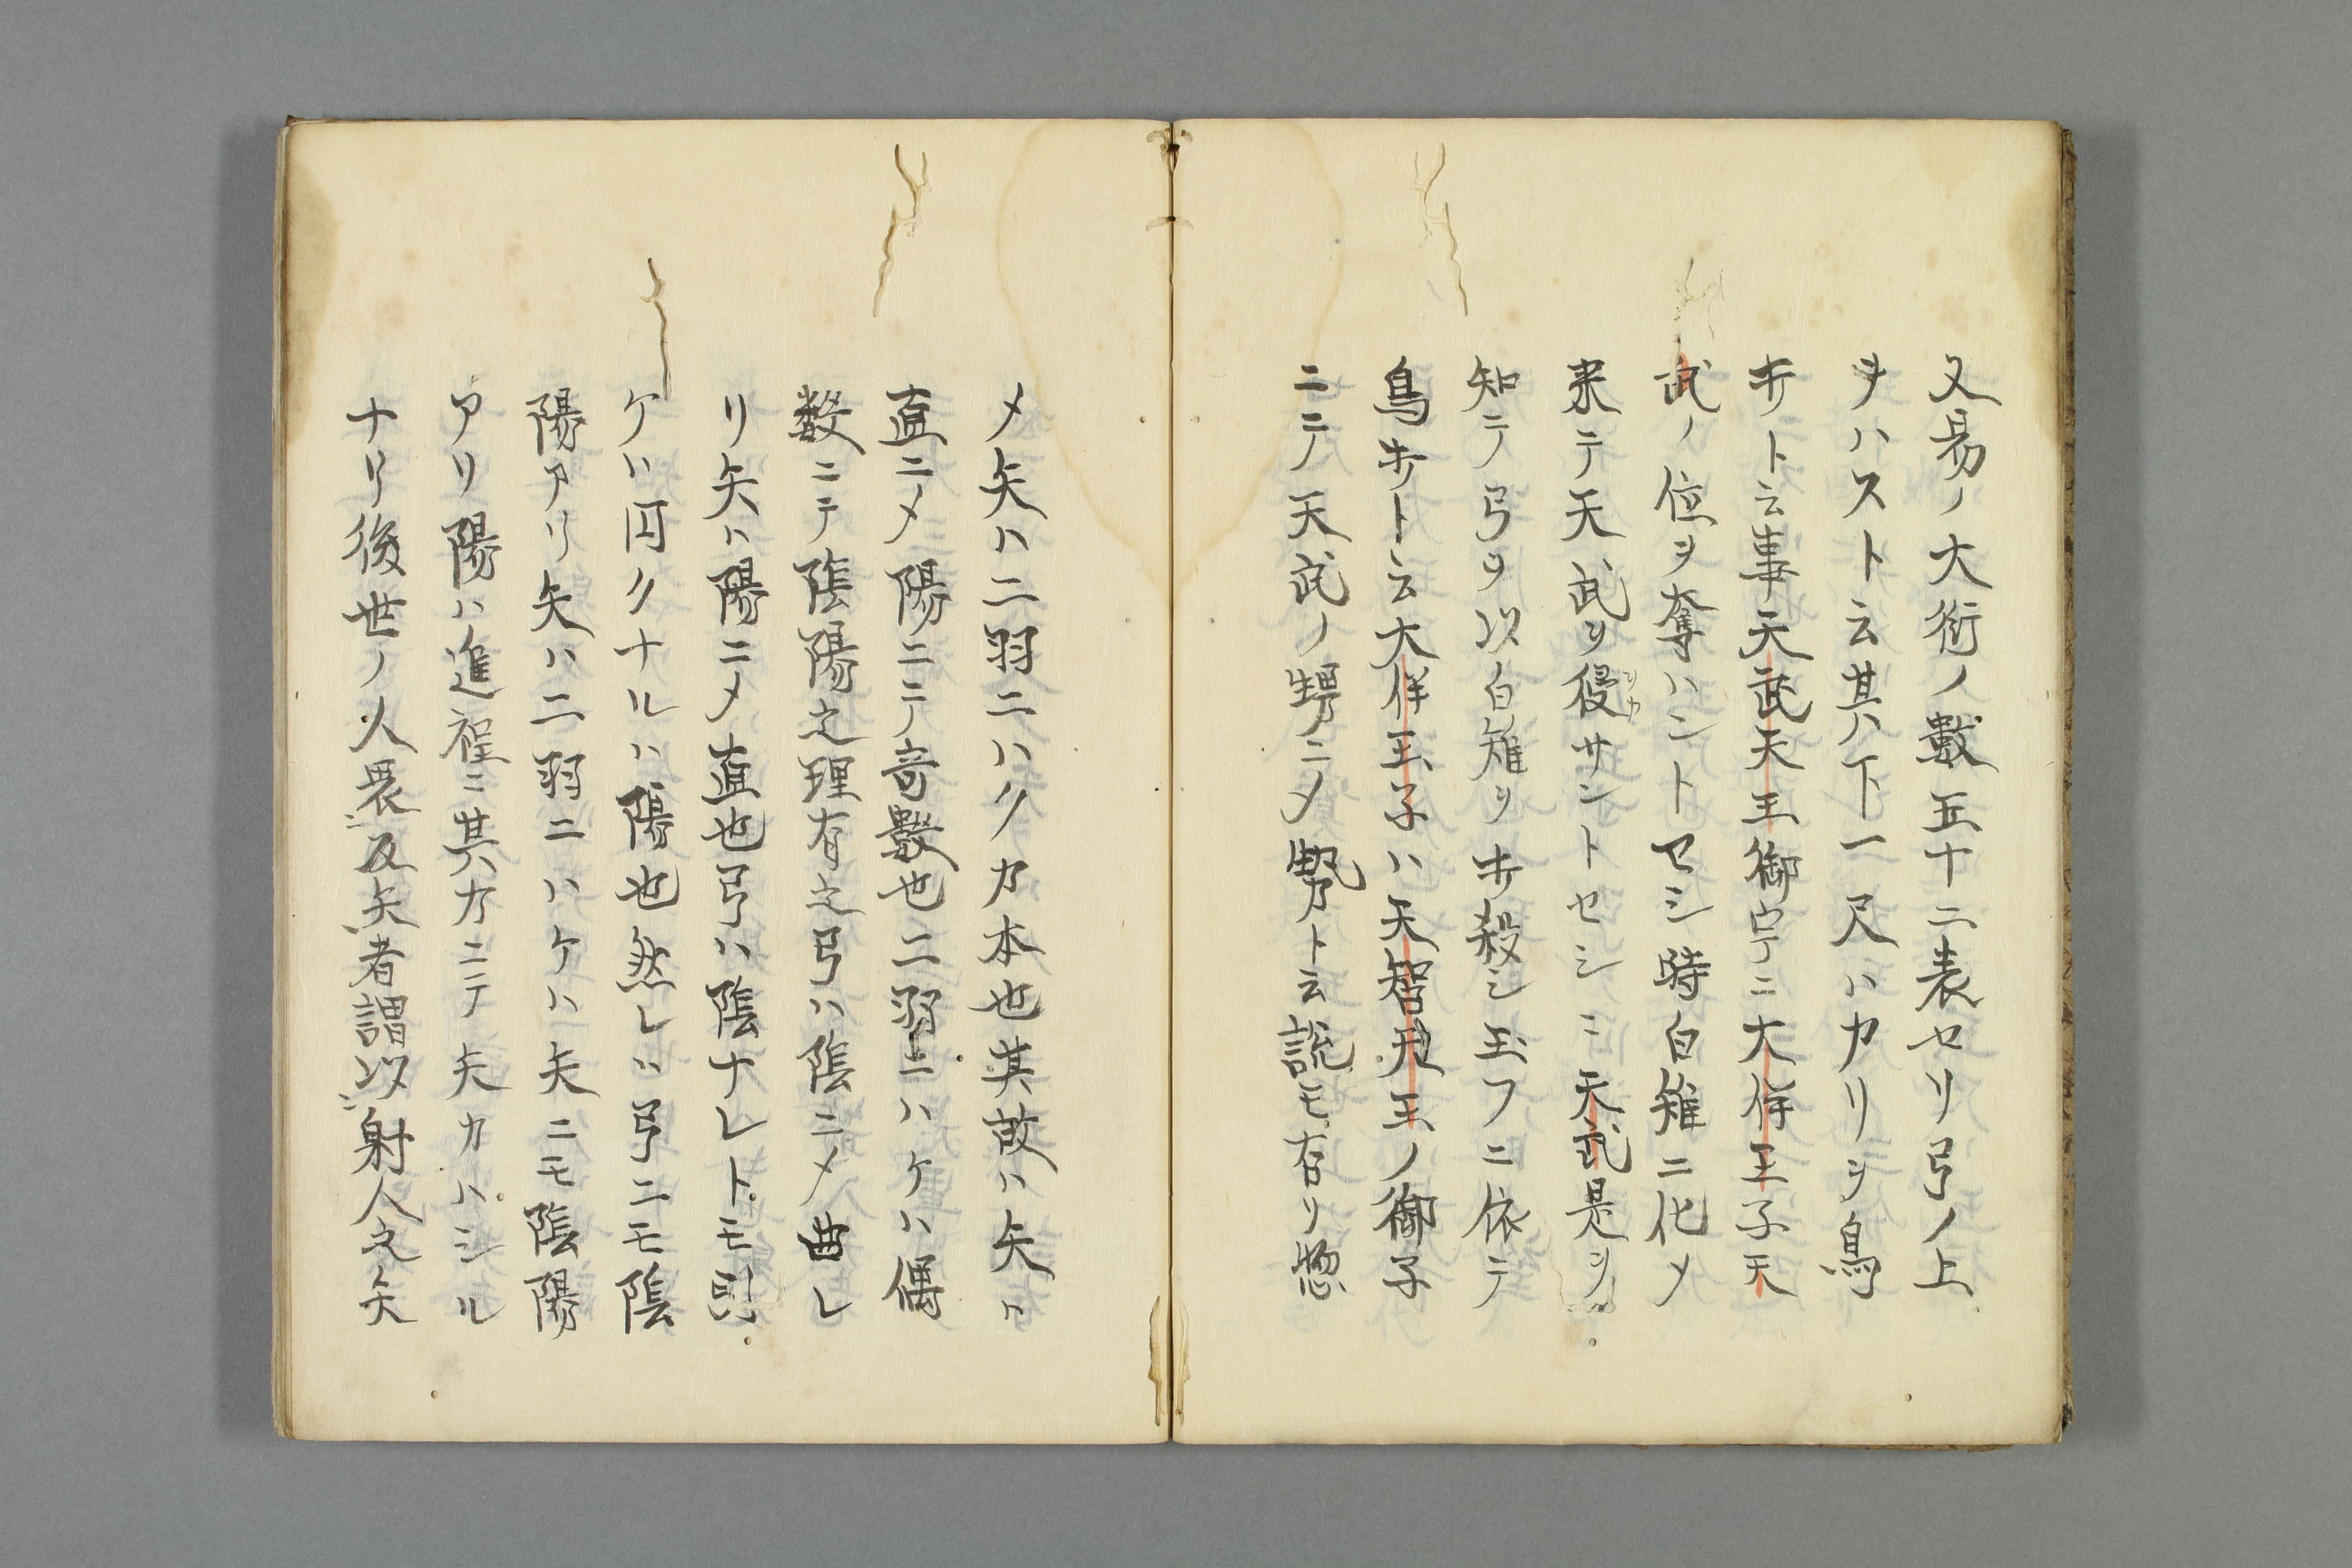 又易ノ大衍ノ數五十ニ表セリ弓ノ上
ヲハスト云其ハ下一尺ハカリヲ鳥
打ト云事天武天王御宇ニ大伴王子天
武ノ位ヲ奪ハントマシ時白雉ニ化メ
来テ天武ヲ侵サントセシニ天武是ヲ
知テ弓ヲ以白雉ヲ打殺シ玉フニ依テ
鳥打ト云大伴王子ハ天智天王ノ御子
ニテ天武ノ甥ニメト云説モ有リ
メ矢ハ二羽ニハクカ本也其故ハ矢ハ
直ニメ陽ニテ奇數也二羽ニハケハ偶
數ニテ陰陽之理有之弓ハ陰ニメ曲レ
リ矢ハ陽ニメ直也弓ハ陰ナレトモ
ケハ円クナルハ陽也然レハ弓ニモ陰
陽アリ矢ハ二羽ニハケハ矢ニモ陰陽
アリ陽ハ進程ニ其カニテ矢カハシル
ナリ後世ノ人畏及矢者謂以射人之矢